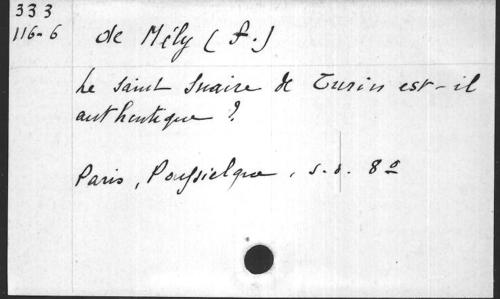 333
116-6
de Mély (F.)
Le saint Suaire de Turin est-il
authentique ?
Paris, Poussielgue, s.d. 8º